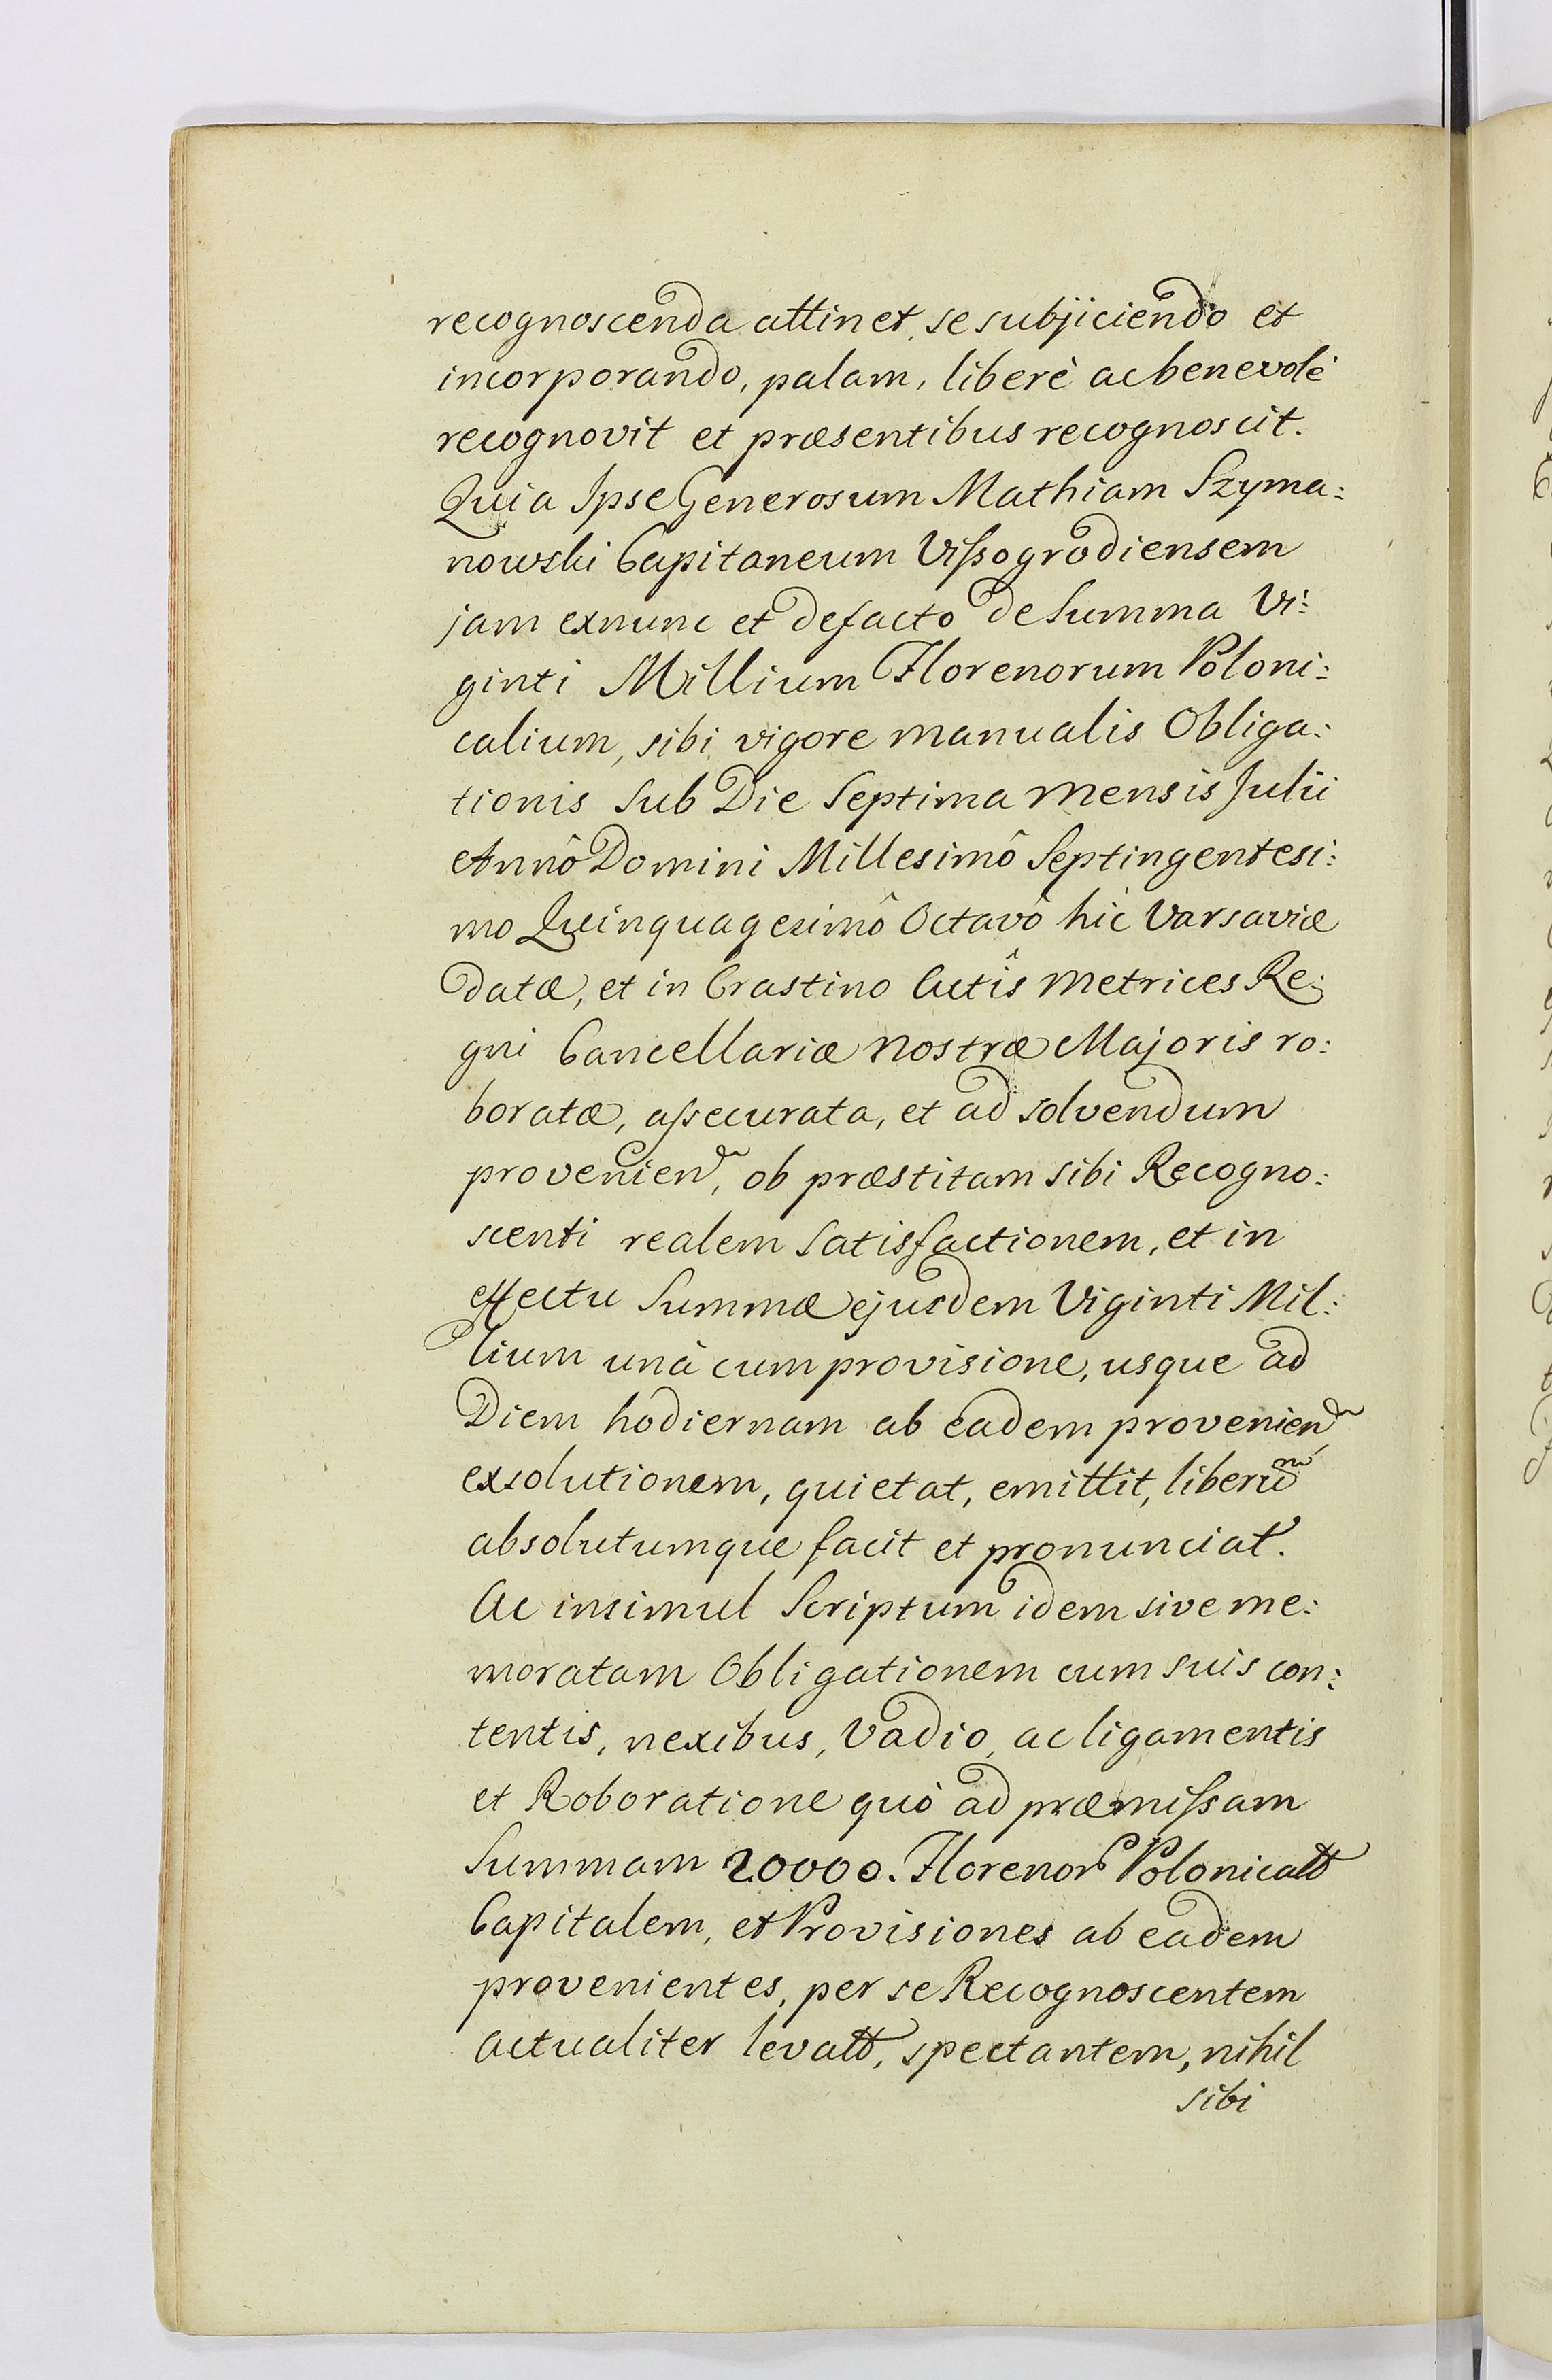 recognoscenda attinet, se subjiciendo et
incorporando, palam, liberè ac benevolè
recognovit et præsentibus recognoscit.
Quia Ipse Generosum Mathiam Szyma:
nowski Capitaneum Vissogrodiensem
jam exnunc et defacto de Summa Vi:
ginti Millium Florenorum Poloni:
calium, sibi vigore manualis Obliga:
tionis Sub Die Septima mensis Julii
Annô Domini Millesimô Septingentesi:
mo Quinquagesimô Octavô hic Varsaviæ
datæ, et in Crastino Actîs Metrices Re:
gni Cancellariæ nostræ Majoris ro:
boratæ, assecurata, et ad solvendum
provenien, ob præstitam sibi Recogno:
scenti realem Satisfactionem, et in
effectu Summæ ejusdem Viginti Mil:
lium unà cum provisione, usque ad
Diem hodiernam ab eadem provenien
exsolutionem, quietat, emittit, liberum
absolutumque facit et pronunciat.
Ac insimul Scriptum idem sive me:
moratam Obligationem cum suis con:
tentis, nexibus, Vadio, ac ligamentis
et Roboratione quò ad præmissam
Summam 20000. Florenor Polonicall
Capitalem, et Provisiones ab eadem
provenientes, per se Recognoscentem
actualiter levatt, spectantem, nihil
sibi